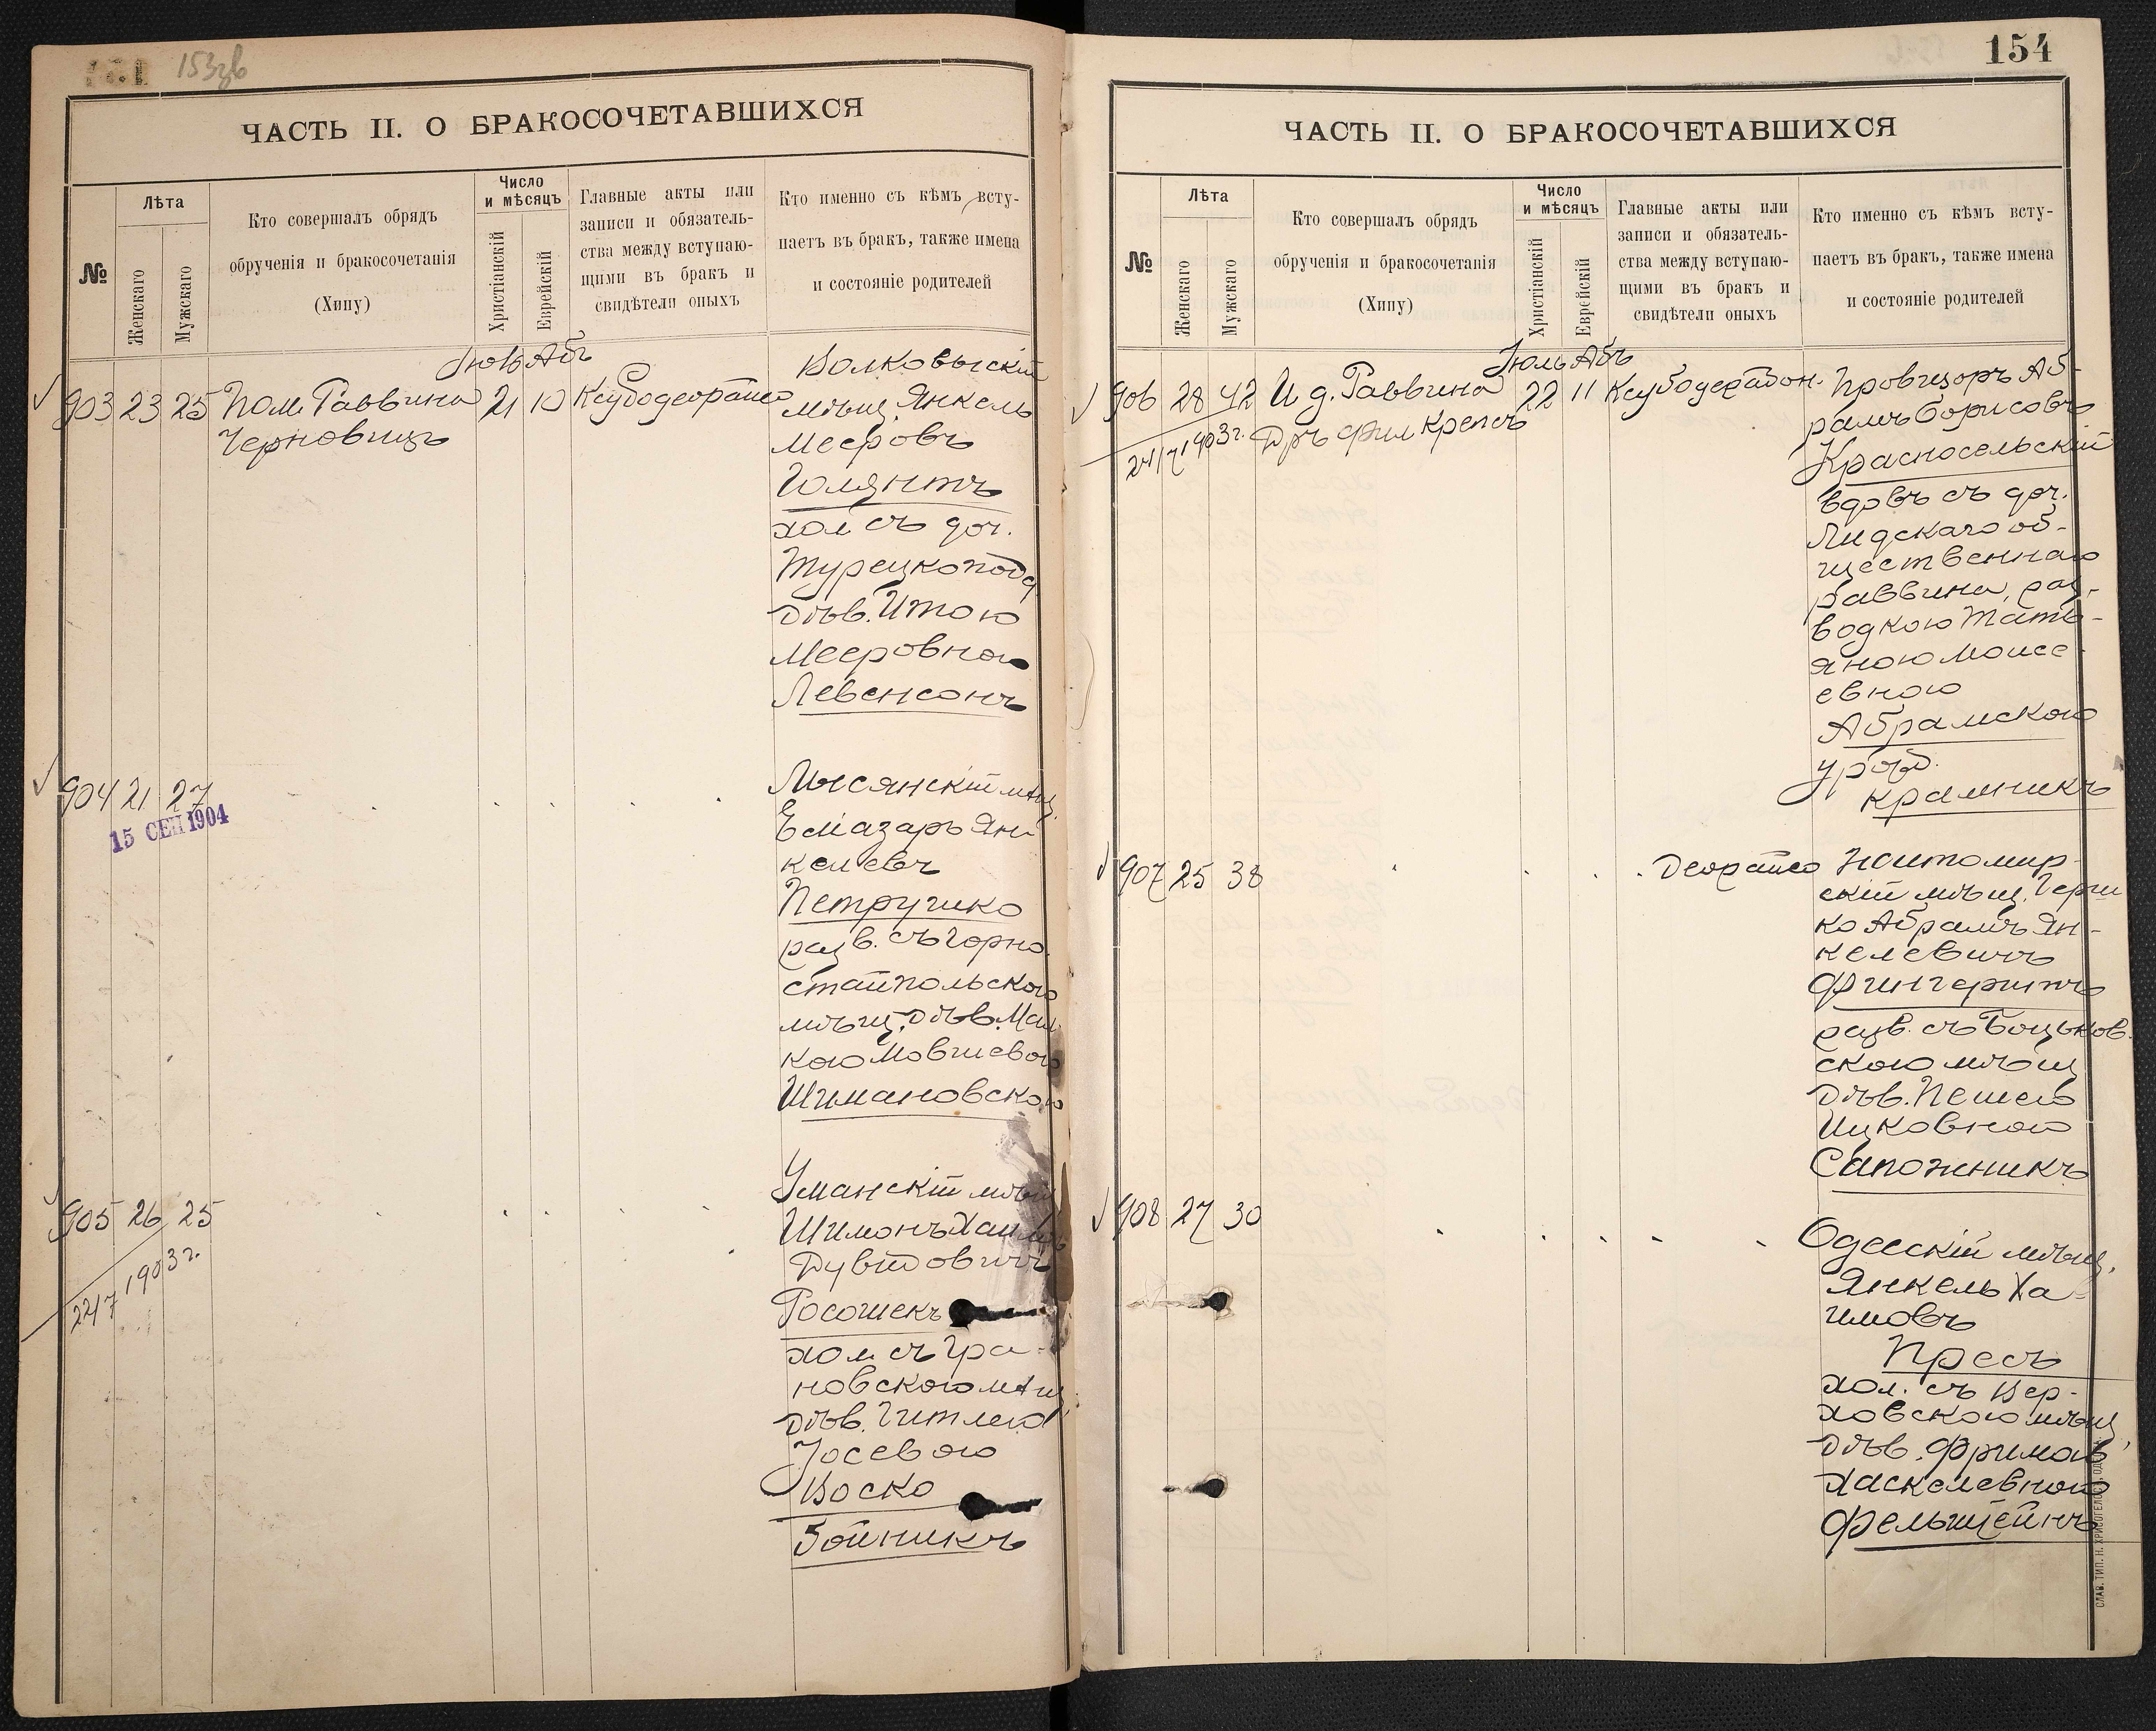 153зв
ЧАСТЬ II. О БРАКОСОЧЕТАВШИХСЯ
№
Лѣта
Женскаго
Мужскаго
Кто совершалъ обрядъ
обрученія и бракосочетанія
(Хипу)
Число
и мѣсяцъ
Христіанскій
Еврейскій
Главные акты или
записи и обязатель-
ства между вступаю-
щими въ бракъ и
свидѣтели оныхъ
Кто именно съ кѣмъ всту-
паетъ въ бракъ, также имена
и состояніе родителей
Іюль Абъ
903 23 25 Пом. Раввина 21 10
Черновицъ
Волковыскій
мѣщ. Янкель
Мееровъ
Голянтъ
хол съ доч.
Турецкопод
дѣв. Итою
Мееровною
Левенсонъ
904 21 27
15 СЕН 1904
Лысянскій мѣщ.
Елiазаръ Ян-
келевъ
Петрушко
разв. съ Горно
стайпольскою
мѣщ. дѣв. Мал
кою Мовшевою
Шимановскою
905 26 25
22/7 1903 г.
Уманскій мѣщ
Шимонъ Хаимъ
Дувидовичъ
Росошекъ
хол съ Гра-
новскою мѣщ.
дѣв. Гитлею
Іосевою
Воско
Бойникъ
154
ЧАСТЬ II. О БРАКОСОЧЕТАВШИХСЯ
№
Лѣта
Женскаго
Мужскаго
Кто совершалъ обрядъ
обрученія и бракосочетанія
(Хипу)
Число
и мѣсяцъ
Христіанскій
Еврейскій
Главные акты или
записи и обязатель-
ства между вступаю-
щими въ бракъ и
свидѣтели оныхъ
Кто именно съ кѣмъ всту-
паетъ въ бракъ, также имена
и состояніе родителей
Іюль Абъ
906 28 42 И д. Раввина 22 11
24/7 1903 г. Дръ Фил Крепсъ
Провизоръ Аб-
рамъ Борисовъ
Красносельскій
вдовъ съ доч.
Лидскаго об-
щественнаго
раввина, раз-
водкою Тать-
яною Моисе-
евною
Абрамскою
урожд.
Крамникъ
907 25 38
Житомир-
скій мѣщ. Герш
ко Абрамъ Ян-
келевичъ
Фингерштъ
разв. съ Боцьков.
скою мѣщ
дѣв. Пешею
Ицковною
Сапожникъ
908 27 30
Одесскій мѣщ.
Янкель Ха-
имовъ
Пресъ
хол. съ Вер-
ховскою мѣщ,
дѣв. Фримою
Хаскелевною
Фельштейнъ